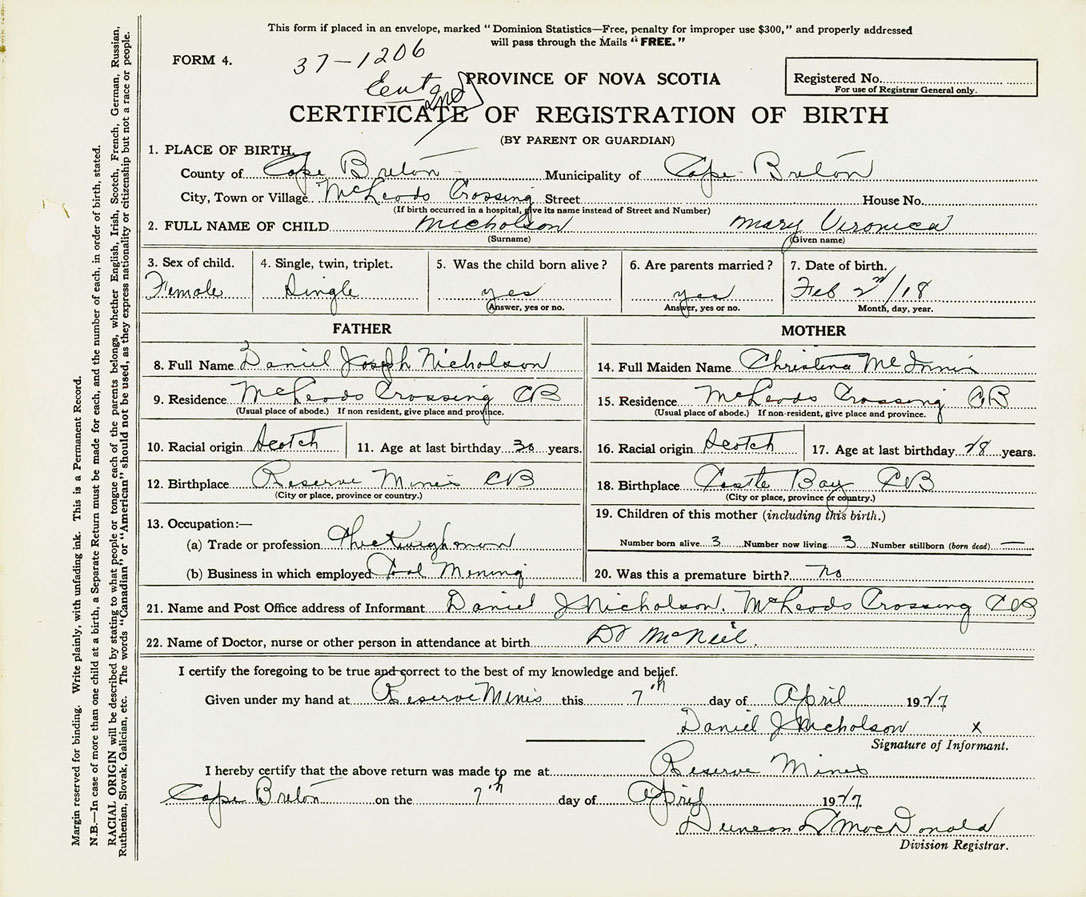 This form if placed in an envelope, marked "Dominion Statistics—Free, penalty for improper use $300," and properly addressed
will pass through the Mails "FREE."
FORM 4.
37-1206
PROVINCE OF NOVA SCOTIA
Registered No.
For use of Registrar General only.
CERTIFICATE OF REGISTRATION OF BIRTH
(BY PARENT OR GUARDIAN)
1. PLACE OF BIRTH.
County of Cape Breton Municipality of Cape Breton
City, Town or Village McLeods Crossing Street House No.
(If birth occurred in a hospital, give its name instead of Street and Number)
2. FULL NAME OF CHILD Nicholson Mary Veronica
(Surname) (Given name)
3. Sex of child. 4. Single, twin, triplet. 5. Was the child born alive? 6. Are parents married? 7. Date of birth.
Female Single yes yes Feb 2nd/18
(Answer, yes or no. (Answer, yes or no. Month, day, year.
FATHER MOTHER
8. Full Name Daniel Joseph Nicholson 14. Full Maiden Name Christena McInnis
9. Residence McLeods Crossing CB 15. Residence McLeods Crossing CB
(Usual place of abode.) If non resident, give place and province. (Usual place of abode.) If non-resident, give place and province.
10. Racial origin Scotch 11. Age at last birthday 30 years. 16. Racial origin Scotch 17. Age at last birthday 28 years.
12. Birthplace Reserve Mines CB 18. Birthplace Castle Bay CB
(City or place, province or country.) (City or place, province or country.)
13. Occupation:— 19. Children of this mother (including this birth.)
(a) Trade or profession Number born alive 3 Number now living 3 Number stillborn (born dead) —
(b) Business in which employed Coal Mining 20. Was this a premature birth? no
21. Name and Post Office address of Informant Daniel J Nicholson, McLeods Crossing CB
22. Name of Doctor, nurse or other person in attendance at birth Dr McNeil.
I certify the foregoing to be true and correct to the best of my knowledge and belief.
Given under my hand at Reserve Mines this 7th day of April 19
Daniel J Nicholson X
Signature of Informant.
I hereby certify that the above return was made to me at Reserve Mines
Cape Breton on the 7th day of April 19
MacDonald
Division Registrar.
Margin reserved for binding. Write plainly, with unfading ink. This is a Permanent Record.
N.B.—In case of more than one child at a birth, a Separate Return must be made for each, and the number of each, in order of birth, stated.
RACIAL ORIGIN will be described by stating to what people or tongue each of the parents belongs, whether English, Irish, Scotch, French, German, Russian,
Ruthenian, Slovak, Galician, etc. The words "Canadian" or "American" should not be used, as they express nationality or citizenship but not a race or people.